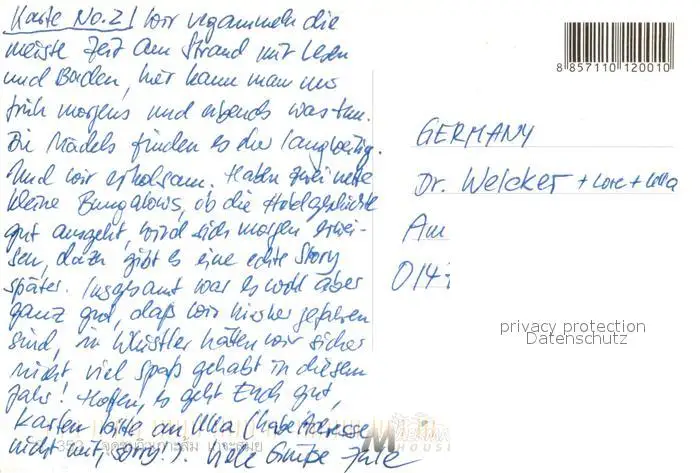 Karte No. 2! Wir vergammeln die
meiste Zeit am Strand mit Lesen
und Baden, hier kann man nur
früh morgens und abends was tun.
Die Mädels finden es hier langweilig.
Und wir erholsam. Haben zwei nette
kleine Bungalows, ob die Hotelgeschichte
gut ausgeht, wird sich morgen erwei-
sen, dazu gibt es eine echte Story
später. Insgesamt war es wohl aber
ganz gut, daß wir hierher gefahren
sind, in Whistler hätten wir sicher
nicht viel Spaß gehabt in diesem
Jahr! Hoffen, es geht Euch gut,
Karten bitte an Ulla (habe Adresse
nicht mit, sorry!). Viele Grüße
8 857110 120010
GERMANY
Dr. Welcker + Lore +
Am
014
privacy protection
Datenschutz
HOUSE